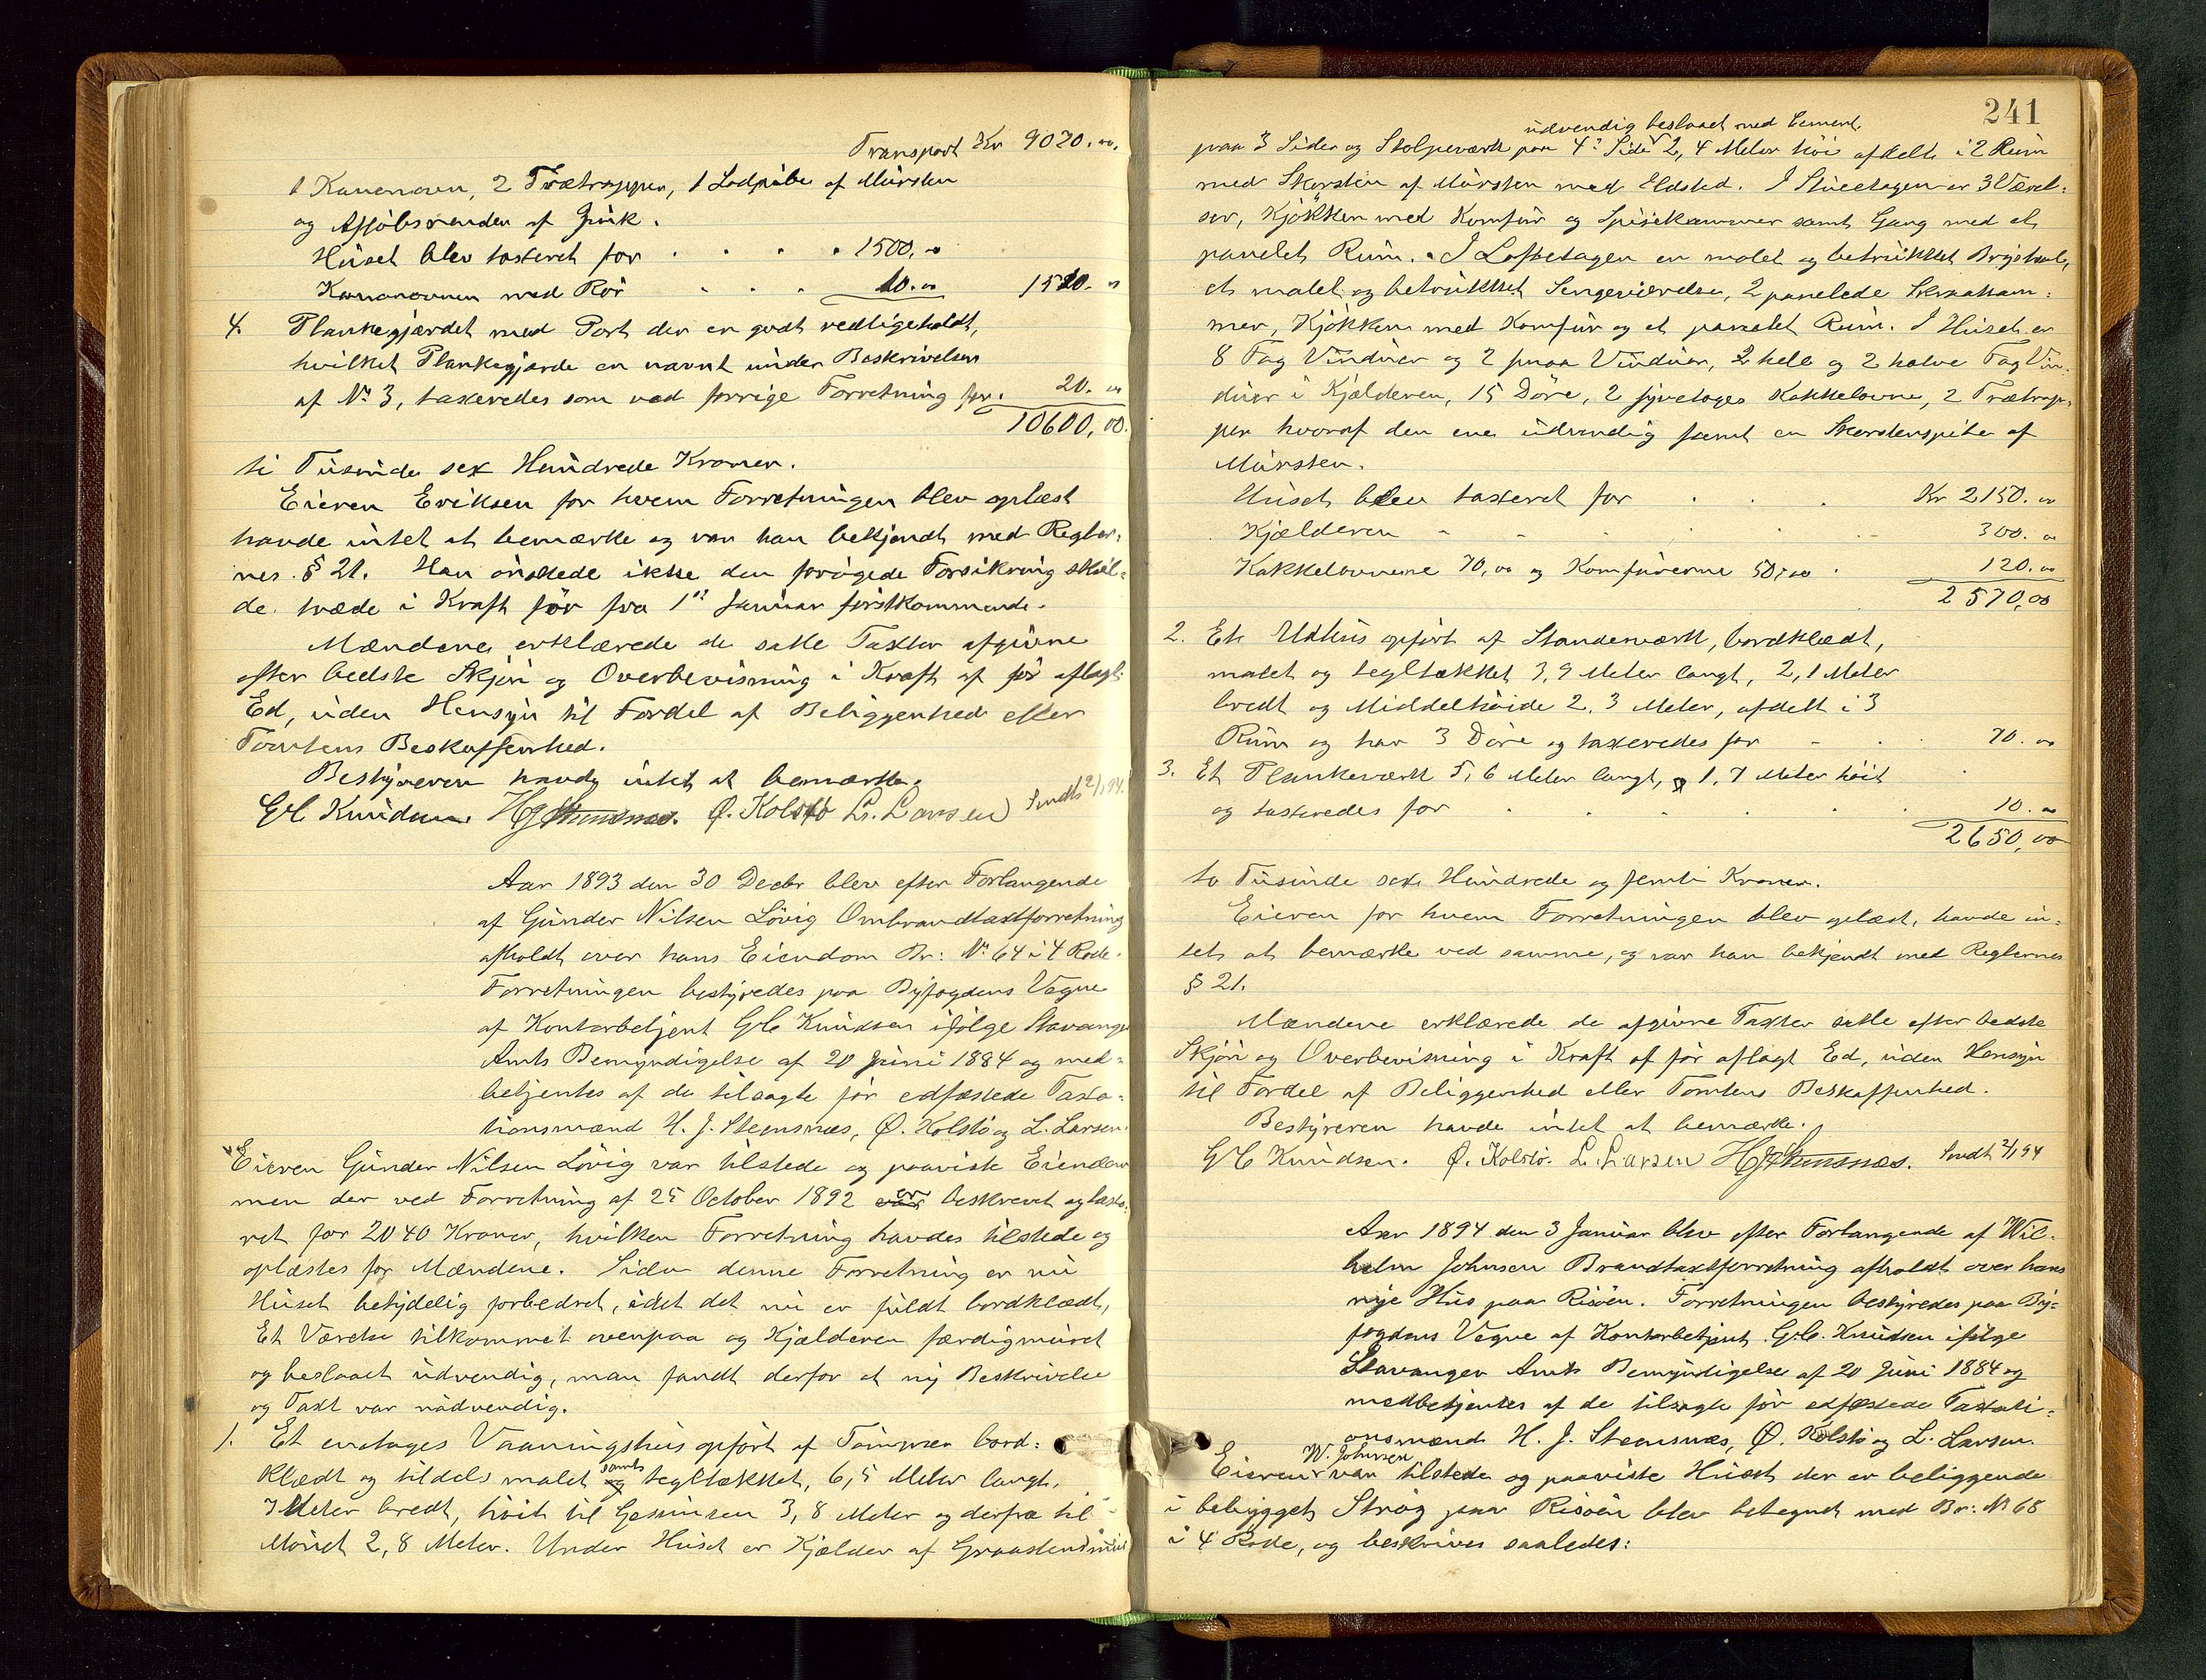 Transport Kr 9070.00.
1 Kanonovn, 2 Trætrapper, 1 Lodpibe af Mursten
og Afløbsrender af Zink.
Huset blev taxeret for . . . . 1500,00
Kanonovnen med Rør . . . 10.00 1510.00
4. Plankegjærdet med Port der er godt vedligeholdt,
hvilket Plankegjærde er nævnt under Beskrivelsen
af No 3, taxeredes som ved forrige Forretning for. 20.00
10600,00.
ti Tusinde sex Hundrede Kroner.
Eieren Eriksen for hvem Forretningen blev oplæst
havde intet at bemærke og var han bekjendt med Regler-
nes § 21. Han ønskede ikke den forøgede Forsikring skul-
de træde i Kraft før fra 1ste Januar førstkommende.
Mændene erklærede de satte Taxter afgivne
efter bedste Skjøn og Overbevisning i Kraft af før aflagt
Ed, uden Hensyn til Fordel af Beliggenhed eller
Tomtens Beskaffenhed.
Bestyreren havde intet at bemærke.
G C Knudsen. H J Stemsnæs. Ø. Kolstø L. Larsen Sendt 2/1 94.
Aar 1893 den 30 Decbr blev efter Forlangende
af Gunder Nilsen Løvig Ombrandtaxtforretning
afholdt over hans Eiendom Br: No 64 i 4 Rode.
Forretningen bestyredes paa Byfogdens Vegne
af Kontorbetjent G C Knudsen ifølge Stavanger
Amts Bemyndigelse af 20 Juni 1884 og med-
betjentes af de tilsagte før edfæstede Taxa-
tionsmænd H. J. Stemsnæs, Ø. Kolstø og L. Larsen.
Eieren Gunder Nilsen Løvig var tilstede og paaviste Eiendom-
men der ved Forretning af 25 October 1892 er beskrevet og taxe-
ret for 2040 Kroner, hvilken Forretning havdes tilstede og
oplæstes for Mændene. Siden denne Forretning er nu
Huset betydelig forbedret, idet det nu er fuldt bordklædt,
Et Værelse tilkommet ovenpaa og Kjælderen færdigmuret
og beslaaet udvendig, man fandt derfor at ny Beskrivelse
og Taxt var nødvendig.
1. Et enetages Vaaningshus opført af Tømmer bord-
klædt og tildels malet samt tegltækket, 6,5 Meter langt,
7 Meter bredt, høit til Gesimsen 3,8 Meter og derfra til
Mønet 2,8 Meter. Under Huset er Kjælder af Graastensmur
241
udvendig beslaaet med Cement,
paa 3 Sider og Stolpeværk paa 4de Side 2,4 Meter høi afdelt i 2 Rum
med Skorsten af Mursten med Ildsted. I Stuetagen er 3 Værel-
ser, Kjøkken med Komfur og Spisekammer samt Gang med et
panelet Rum. I Loftetagen er malet og betrukket Brystval,
et malet og betrukket Sengeværelse, 2 panelede Skraakam-
mer, Kjøkken med Komfur og et panelet Rum. I Huset er
8 Fag Vinduer og 2 smaa Vinduer, 2 hele og 2 halve Fag Vin-
duer i Kjælderen, 15 Døre, 2 syvetages Kakkelovne, 2 Trætrap-
per hvoraf den ene udvendig samt en Skorstenspibe af
Mursten.
Huset blev taxeret for . . . Kr 2150.00
Kjælderen - - . . . 300.00
Kakkelovnene 70,00 og Komfurerne 50,00 . 120.00
2570,00
2. Et Udhus opført af Standerværk, bordklædt,
malet og tegltækket 3,9 Meter langt, 2,1 Meter
bredt og Middelhøide 2,3 Meter, afdelt i 3
Rum og har 3 Døre og taxeredes for - . . 70.00
3. Et Plankeværk 5,6 Meter langt, og 1,7 Meter høit
og taxeredes for . . . . . 10.00
2650,00
to Tusinde sex Hundrede og femti Kroner.
Eieren for hvem Forretningen blev oplæst, havde in-
tet at bemærke ved samme, og var han bekjendt med Reglernes
§ 21.
Mændene erklærede de afgivne Taxter satte efter bedste
Skjøn og Overbevisning i Kraft af før aflagt Ed, uden Hensyn
til Fordel af Beliggenhed eller Tomtens Beskaffenhed.
Bestyreren havde intet at bemærke.
G C Knudsen. Ø. Kolstø. L. Larsen H J Stemsnæs. Sendt 2/1 94
Aar 1894 den 3 Januar blev efter Forlangende af Wil-
helm Johnsen Brandtaxtforretning afholdt over hans
nye Hus paa Risøen. Forretningen bestyredes paa By-
fogdens Vegne af Kontorbetjent G. C. Knudsen ifølge
Stavanger Amts Bemyndigelse af 20 Juni 1884 og
medbetjentes af de tilsagte før edfæstede Taxati-
onsmænd H. J. Stemsnæs, Ø. Kolstø og L. Larsen.
Eieren W. Johnsen var tilstede og paaviste Huset der er beliggende
i bebygget Strøg paa Risøen blev betegnet med Br: No 68
i 4 Rode, og beskrives saaledes: